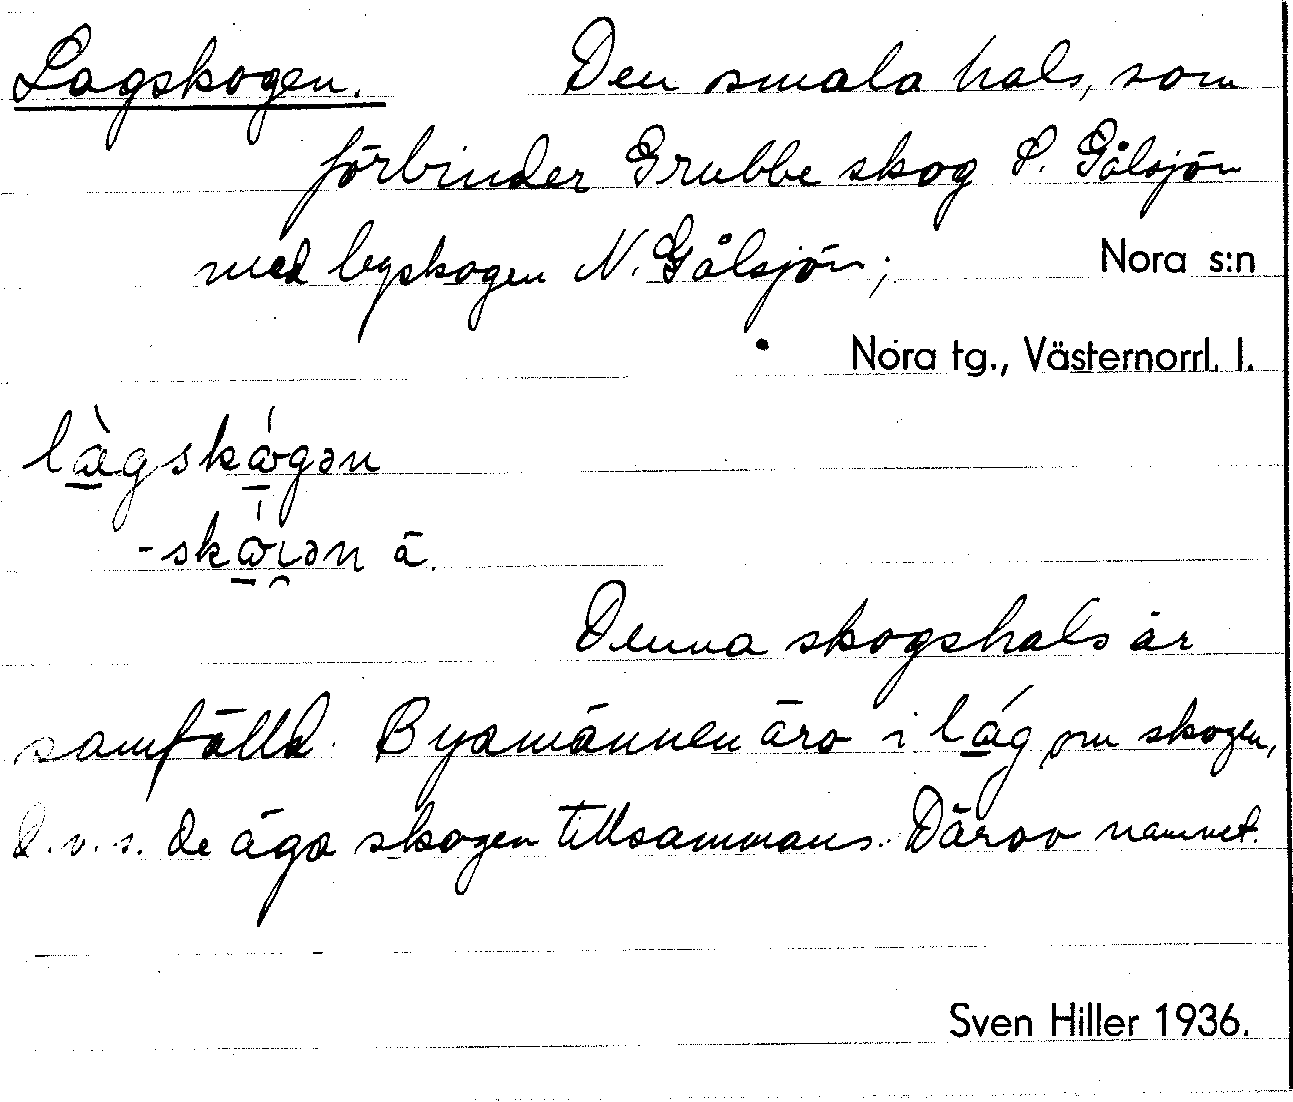 Lagskogen. Den smala hals, som
förbinder Grubbe skog S. Gålsjön
med byskogen N. Gålsjön; Nora s:n
Nora tg., Västernorrl. l.
là̱gskó̱gən
-skó̱ı̯ən ä.
Denna skogshals är
samfälld. Byamännen äro i lá̱g om skogen,
d.v.s. de äga skogen tillsammans. Därav namnet.
Sven Hiller 1936.